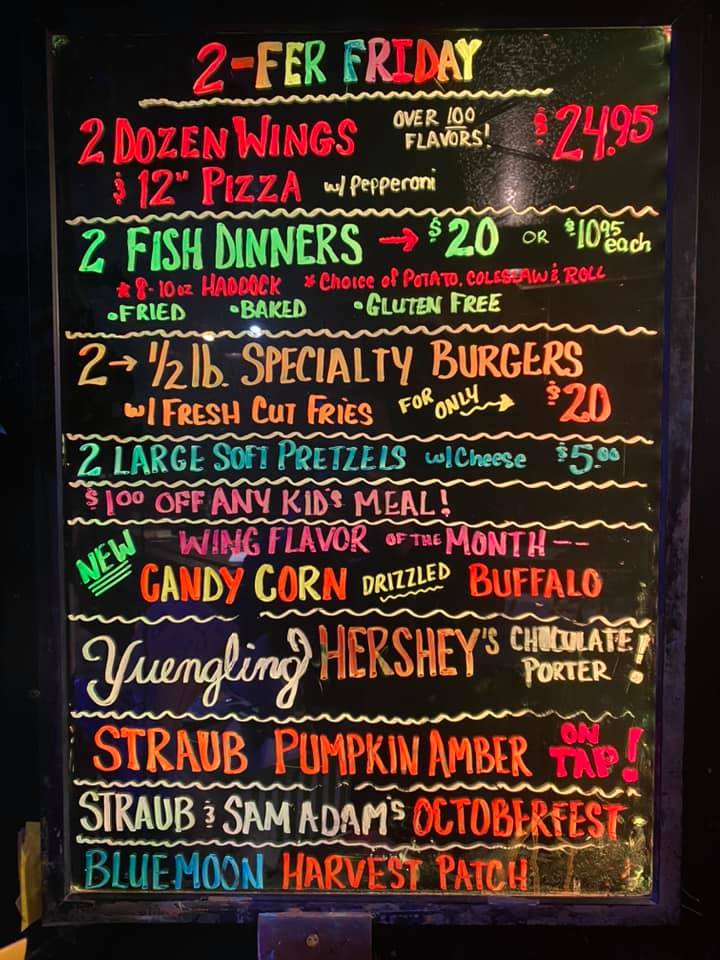 2-FER FRIDAY
2 DOZEN WINGS OVER 100 FLAVORS! $24.95
& 12" PIZZA w/ Pepperoni
2 FISH DINNERS → $20 OR $10.95 each
* 8-10 oz HADDOCK * CHOICE of POTATO, COLESLAW & ROLL
•FRIED •BAKED •GLUTEN FREE
2 → 1/2 lb. SPECIALTY BURGERS
w/ FRESH CUT FRIES FOR ONLY → $20
2 LARGE SOFT PRETZELS w/Cheese $5.00
$1.00 OFF ANY KID'S MEAL!
NEW WING FLAVOR OF THE MONTH --
CANDY CORN DRIZZLED BUFFALO
Yuengling HERSHEY'S CHOCOLATE PORTER!
STRAUB PUMPKIN AMBER ON TAP!
STRAUB & SAM ADAM'S OCTOBERFEST
BLUE MOON HARVEST PATCH